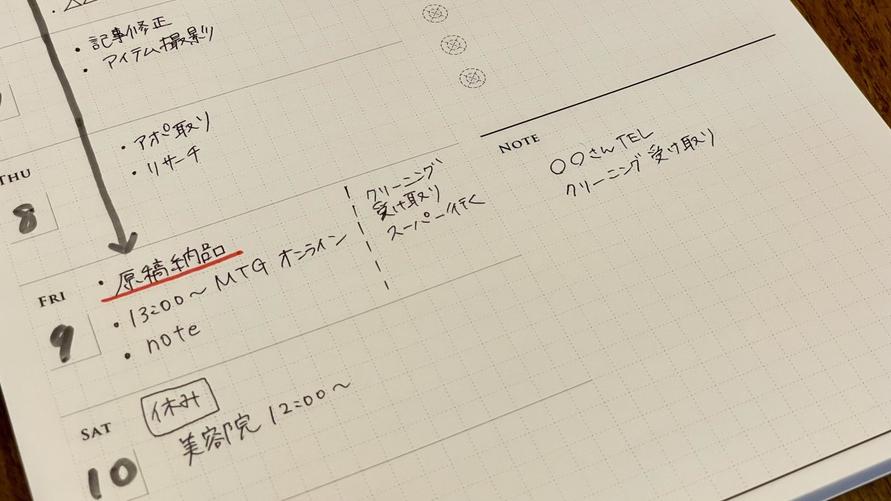 ・記事修正
・アイテム撮影
THU
8
・アポ取り
・リサーチ
FRI
9
・原稿納品
・13:00〜 MTG オンライン
・note
クリーニング
受け取り
スーパー行く
SAT
10
休み
美容院 12:00〜
NOTE
〇〇さんTEL
クリーニング受け取り